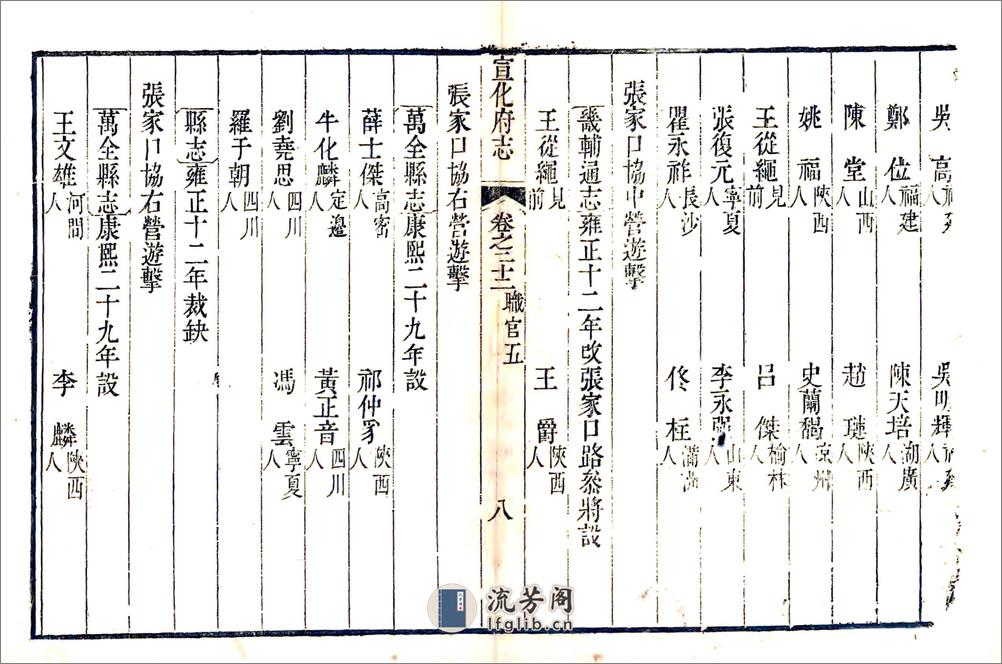 吳高福建人 吳明輝福建人
鄭位福建人 陳天培湖廣人
陳堂山西人 趙璉陝西人
姚福陝西人 史蘭馤涼州人
張復元寧夏人 李永強山東人
王從繩見前 呂傑榆林人
瞿永祚長沙人 佟柱滿洲人
張家口協中營遊擊
畿輔通志雍正十二年改張家口路叅將設
王從繩見前 王爵陝西人
宣化府志 卷之二十二 職官五 八
張家口協右營遊擊
萬全縣志康熙二十九年設
薛士傑高密人 祁仲豸陝西人
牛化麟定邊人 黃正音四川人
劉堯思四川人 馮雲寧夏人
羅于朝四川人
縣志雍正十二年裁缺
張家口協右營遊擊
萬全縣志康熙二十九年設
王文雄河間人 李麟陝西人
流芳阁
lfglib.cn